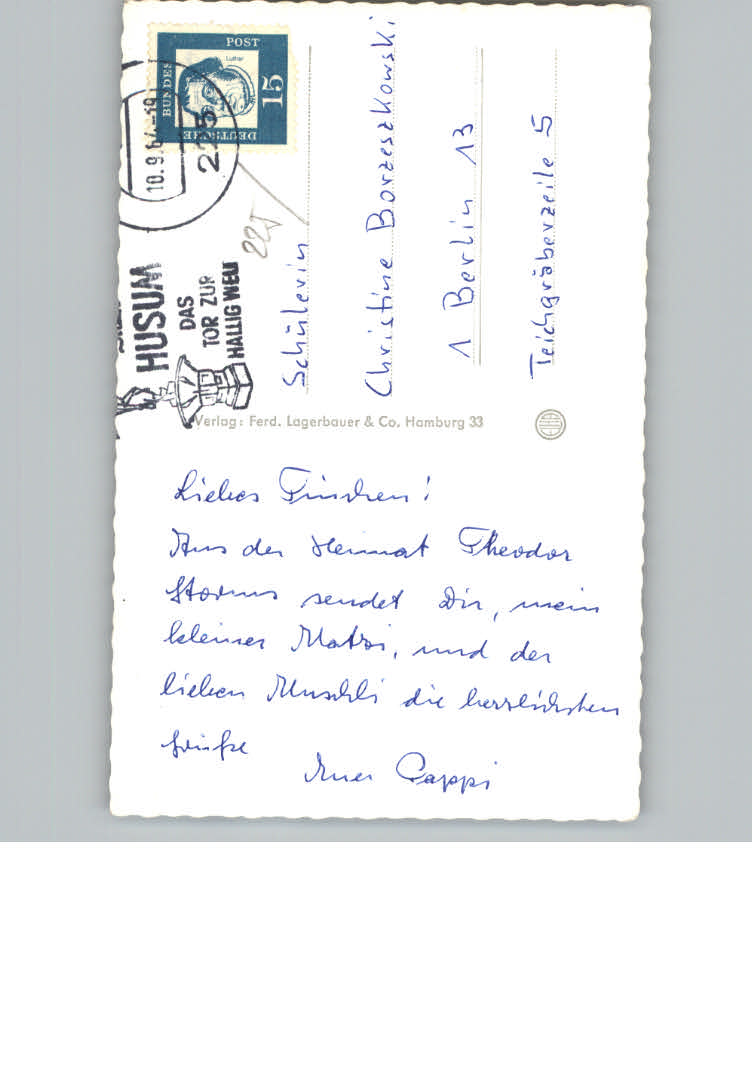 DEUTSCHE
BUNDES
POST
Luther
15
10.9.67.-19
225
HUSUM
DAS
TOR ZUR
HALLIG WELT
225
Schülerin
Christine Borzeszkowski
1 Berlin 13
Teichgräberzeile 5
Verlag: Ferd. Lagerbauer & Co. Hamburg 33
Liebes Tinchen!
Aus der Heimat Theodor
Storms sendet Dir, mein
kleiner Matzi, und der
lieben Muschli die herzlichsten
Grüße
Euer Pappi